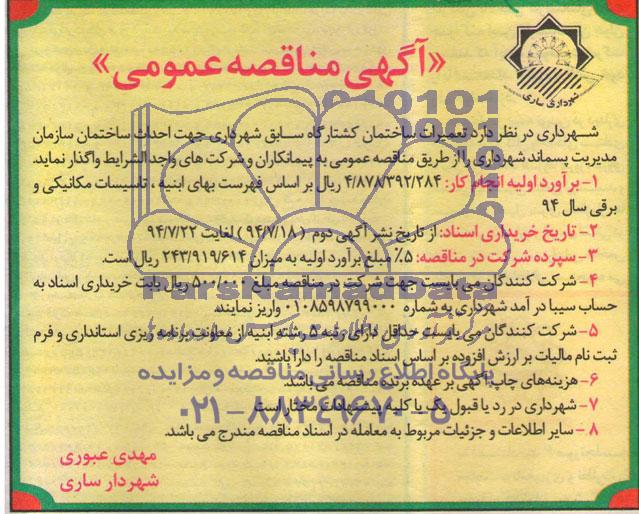 «آگهی مناقصه عمومی»
شهرداری ساری
شهرداری در نظر دارد تعمیرات ساختمان کشتارگاه سابق شهرداری جهت احداث ساختمان سازمان
مدیریت پسماند شهرداری را از طریق مناقصه عمومی به پیمانکاران و شرکت های واجد الشرایط واگذار نماید.
۱- برآورد اولیه انجام کار: ۴/۸۷۸/۳۹۲/۲۸۴ ریال بر اساس فهرست بهای ابنیه ، تاسیسات مکانیکی و
برقی سال ۹۴
۲- تاریخ خریداری اسناد: از تاریخ نشر آگهی دوم ( ۹۴/۷/۱۸ ) لغایت ۹۴/۷/۲۲
۳- سپرده شرکت در مناقصه: ۵٪ مبلغ برآورد اولیه به میزان ۲۴۳/۹۱۹/۶۱۴ ریال است.
۴- شرکت کنندگان می بایست جهت شرکت در مناقصه مبلغ ۵۰۰/۰۰۰ ریال بابت خریداری اسناد به
حساب سیبا در آمد شهرداری به شماره ۰۱۰۸۵۹۸۷۹۹۰۰۰ واریز نمایند.
۵- شرکت کنندگان می بایست حداقل دارای رتبه ۵ رشته ابنیه از معاونت برنامه ریزی استانداری و فرم
ثبت نام مالیات بر ارزش افزوده بر اساس اسناد مناقصه را دارا باشند.
۶- هزینه‌های چاپ آگهی بر عهده برنده مناقصه می باشد.
۷- شهرداری در رد یا قبول یک یا کلیه پیشنهادات مختار است
۸- سایر اطلاعات و جزئیات مربوط به معامله در اسناد مناقصه مندرج می باشد.
مهدی عبوری
شهردار ساری
ParsNamadData
پایگاه اطلاع رسانی مناقصه و مزایده
۰۲۱-۸۸۳۴۹۶۷۰-۵